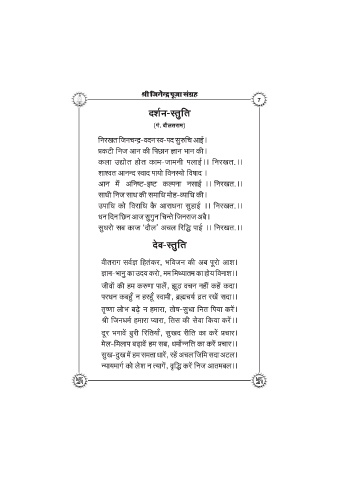 श्री जिनेन्द्र पूजा संग्रह
7
दर्शन-स्तुति
(पं. दौलतराम)
निरखत जिनचन्द्र-वदन स्व-पद सुरुचि आई।
प्रकटी निज आन की पिछान ज्ञान भान की।
कला उद्योत होत काम-जामनी पलाई।। निरखत..।
शाश्वत आनन्द स्वाद पायो विनस्यो विषाद ।
आन में अनिष्ट-इष्ट कल्पना नसाई ।। निरखत..।
साधी निज साध की समाधि मोह-व्याधि की।
उपाधि को विराधि कै आराधना सुहाई ।। निरखत..।
धन दिन छिन आज सुगुन चिन्ते जिनराज अबै।
सुधरो सब काज ‘दौल’ अचल रिद्धि पाई ।। निरखत..।
देव-स्तुति
वीतराग सर्वज्ञ हितंकर, भविजन की अब पूरो आश।
ज्ञान-भानु का उदय करो, मम मिथ्यातम का होय विनाश।।
जीवों की हम करुणा पालें, झूठ वचन नहीं कहें कदा।
परधन कबहुँ न हरहूँ स्वामी, ब्रह्मचर्य व्रत रखें सदा।।
तृष्णा लोभ बढ़े न हमारा, तोष-सुधा नित पिया करें।
श्री जिनधर्म हमारा प्यारा, तिस की सेवा किया करें।।
दूर भगावें बुरी रीतियाँ, सुखद रीति का करें प्रचार।
मेल-मिलाप बढ़ावें हम सब, धर्मोन्नति का करें प्रचार।।
सुख-दुख में हम समता धारें, रहें अचल जिमि सदा अटल।
न्यायमार्ग को लेश न त्यागें, वृद्धि करें निज आतमबल।।